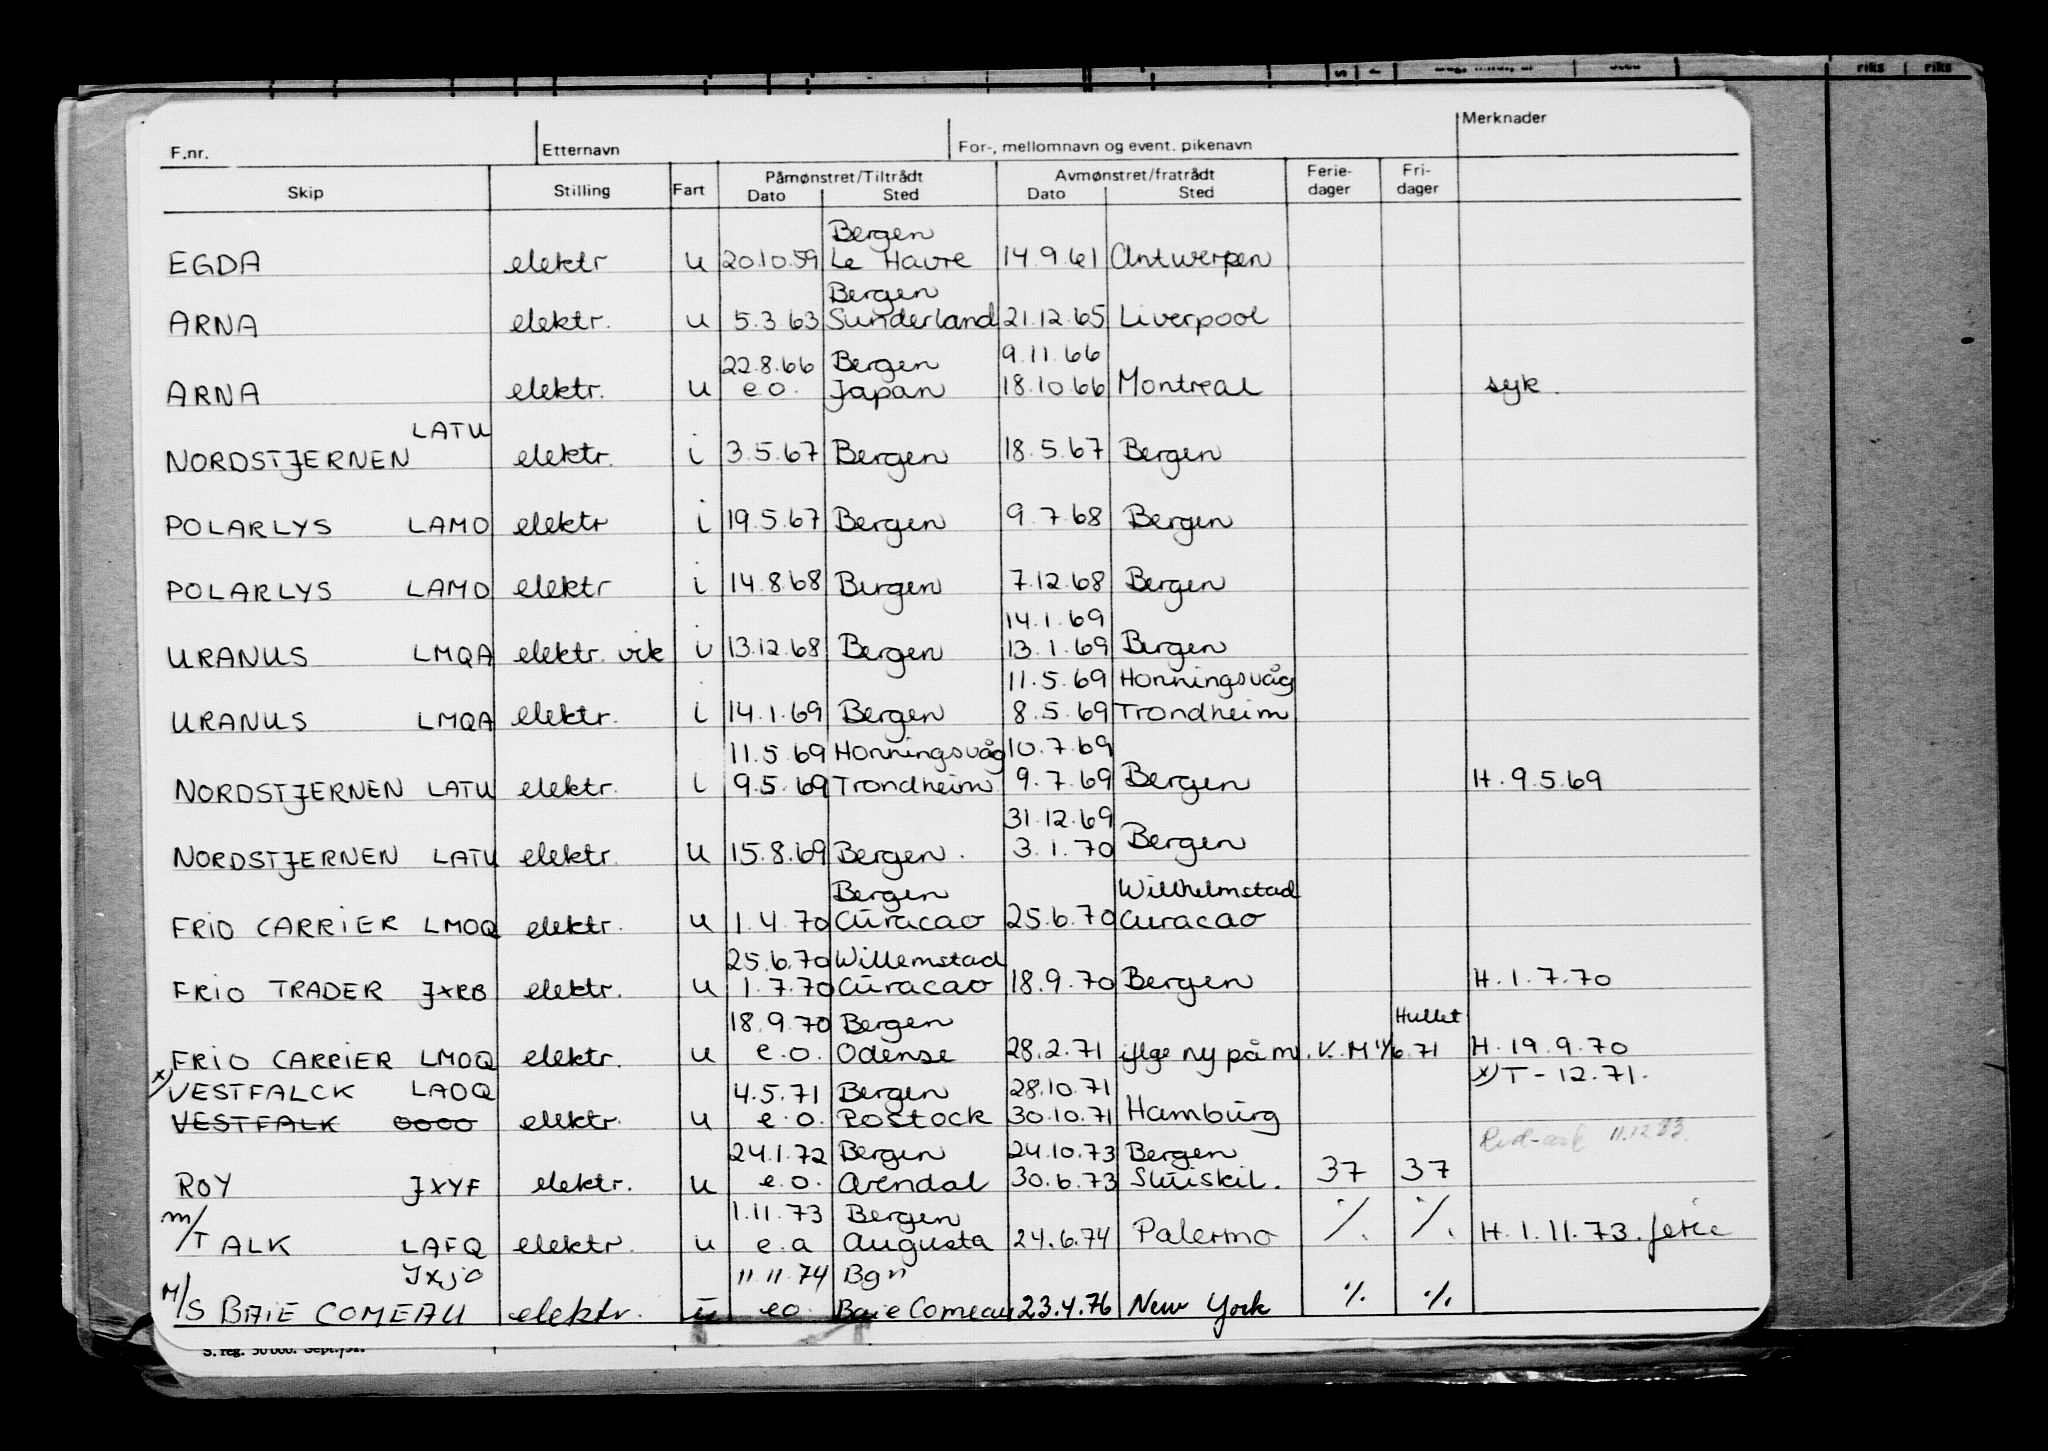 F.nr. Etternavn For-, mellomnavn og event. pikenavn Merknader
Skip Stilling Fart Påmønstret/Tiltrådt Dato Sted Avmønstret/fratrådt Dato Sted Ferie-dager Fri-dager
riks riks
Bergen
EGDA elektr u 20.10.59 Le Havre 14.9.61 Antwerpen
Bergen
ARNA elektr. u 5.3.63 Sunderland 21.12.65 Liverpool
22.8.66 Bergen 9.11.66
ARNA elektr. u e.o. Japan 18.10.66 Montreal syk.
LATU
NORDSTJERNEN elektr. i 3.5.67 Bergen 18.5.67 Bergen
POLARLYS LAMO elektr i 19.5.67 Bergen 9.7.68 Bergen
POLARLYS LAMO elektr i 14.8.68 Bergen 7.12.68 Bergen
14.1.69
URANUS LMQA elektr. vik i 13.12.68 Bergen 13.1.69 Bergen
11.5.69 Honningsvåg
URANUS LMQA elektr. i 14.1.69 Bergen 8.5.69 Trondheim
11.5.69 Honningsvåg 10.7.69
NORDSTJERNEN LATU elektr. i 9.5.69 Trondheim 9.7.69 Bergen H. 9.5.69
31.12.69
NORDSTJERNEN LATU elektr. u 15.8.69 Bergen. 3.1.70 Bergen
Bergen Willhelmstad
FRIO CARRIER LMOQ elektr. u 1.4.70 Curacao 25.6.70 Curacao
25.6.70 Willemstad
FRIO TRADER JXRB elektr. u 1.7.70 Curacao 18.9.70 Bergen H. 1.7.70
18.9.70 Bergen Hullet
FRIO CARRIER LMOQ elektr. u e.o. Odense 28.2.71 iflge ny påm. V.M 1/6.71 H. 19.9.70
x) VESTFALCK LAOQ 4.5.71 Bergen 28.10.71 x) T-12.71.
VESTFALK OOOO elektr. u e.o. Rostock 30.10.71 Hamburg
24.1.72 Bergen 24.10.73 Bergen 11.12.73.
ROY JXYF elektr. u e.o. Arendal 30.6.73 Sluiskil. 37 37
1.11.73 Bergen
m/T ALK LAFQ elektr. u e.a Augusta 24.6.74 Palermo ./. ./. H. 1.11.73. ferie
JXJO 11.11.74 Bgn
M/S BAIE COMEAU elektr. u eo. Baie Comeau 23.4.76 New York ./. ./.
S. reg. 50 000. Sept.